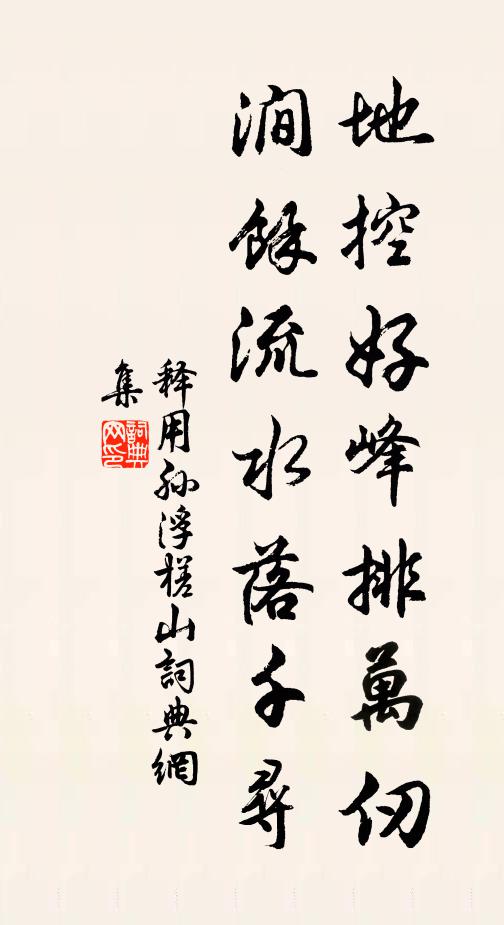 地控好峰排萬仞
澗餘流水落千尋
释用孙浮槎山詞典網
集
詞典
网印